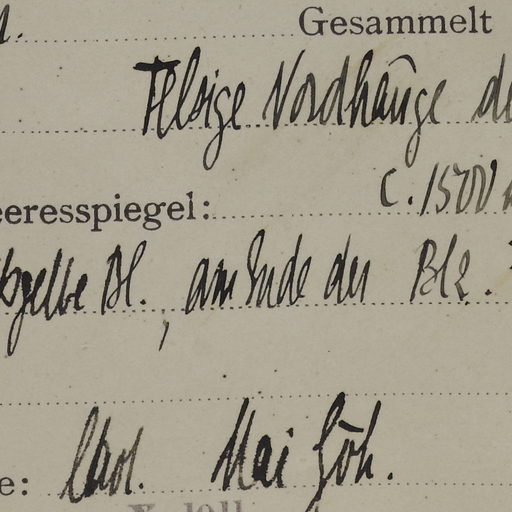 Gesammelt
Felsige Nordhänge de
eeresspiegel: c. 1500
gelbe Bl., am Ende der Blz.
e: Mai